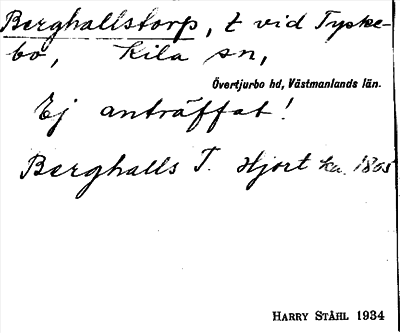 Berghallstorp, t vid Tyske-
bo, Kila sn,
Övertjurbo hd, Västmanlands län.
Ej anträffat!
Berghalls T. Hjort ka. 1805
HARRY STÅHL 1934